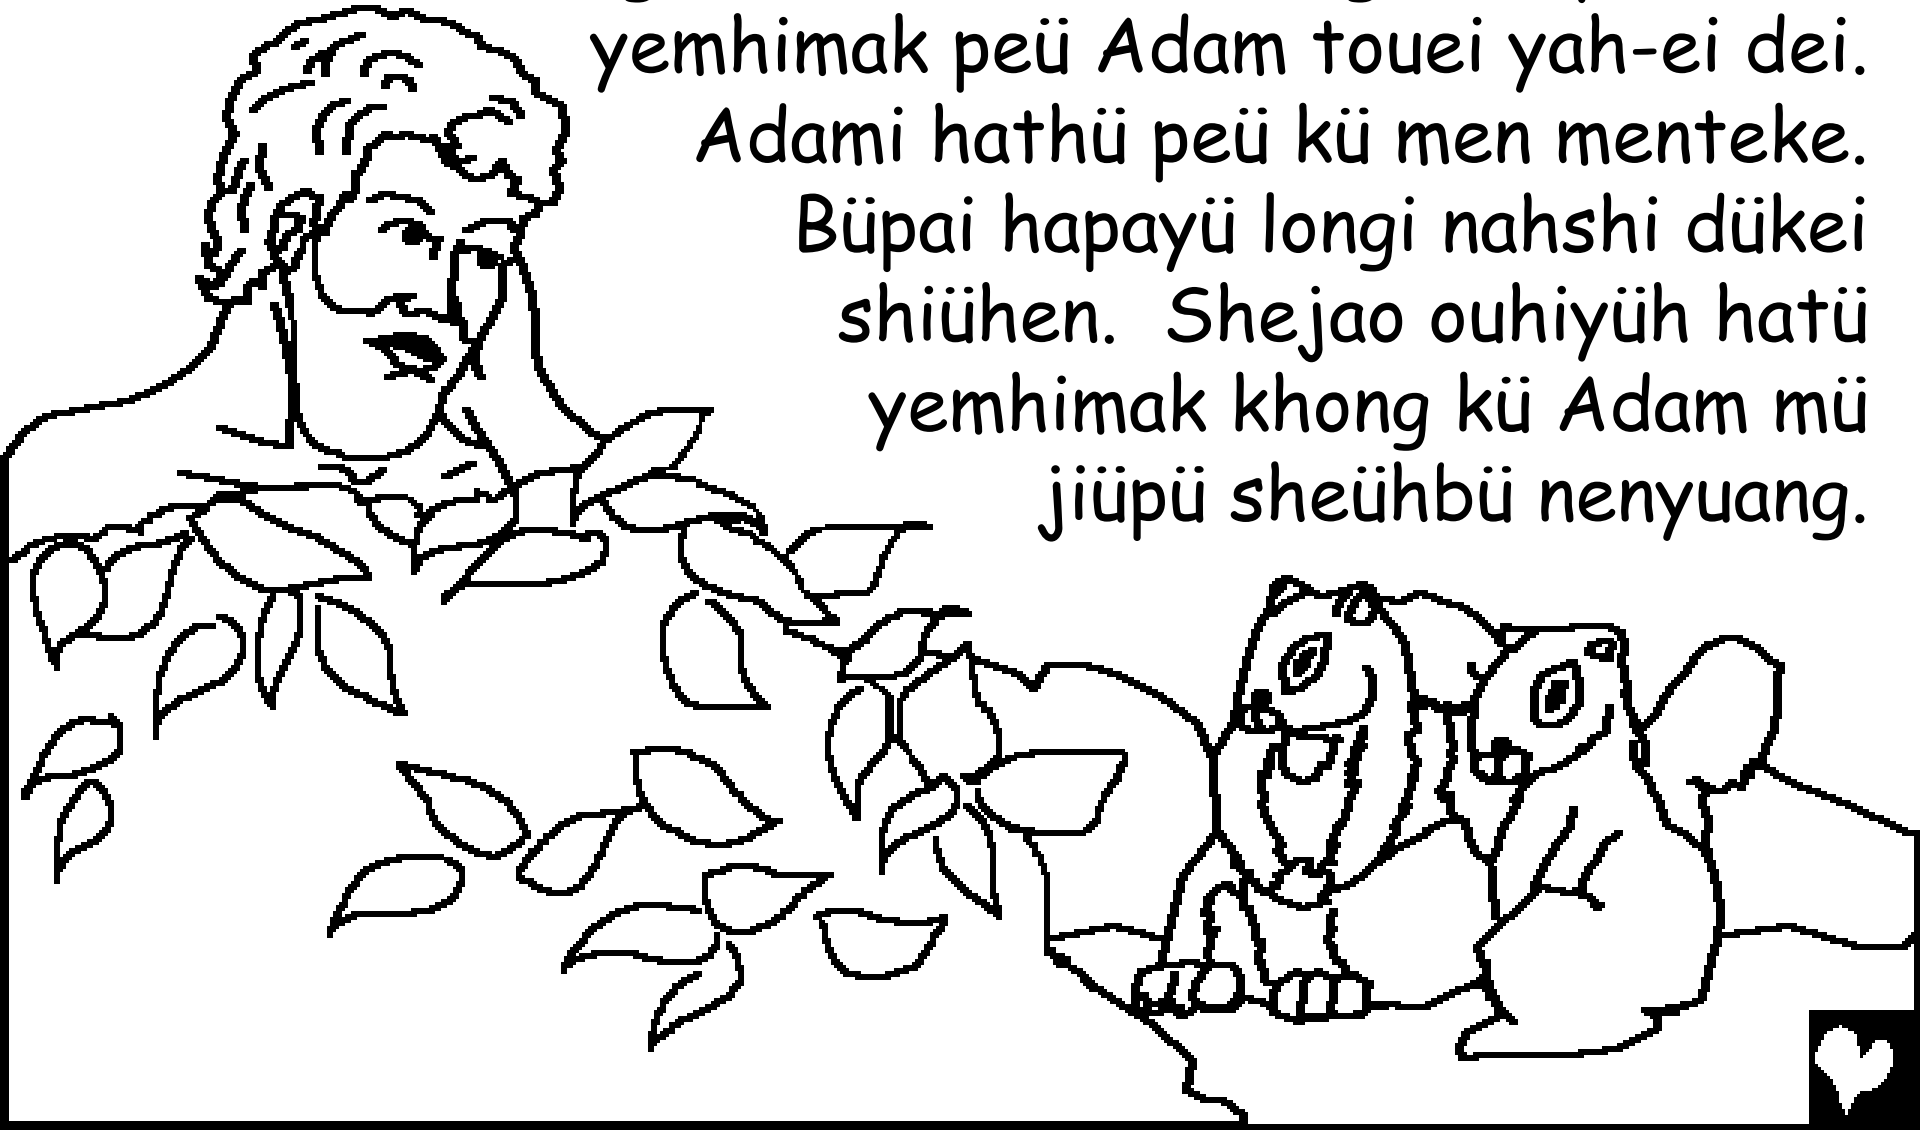 yemhimak peü Adam touei yah-ei dei.
Adami hathü peü kü men menteke.
Büpai hapayü longi nahshi dükei
shiühen.  Shejao ouhiyüh hatü
yemhimak khong kü Adam mü
jiüpü sheühbü nenyuang.